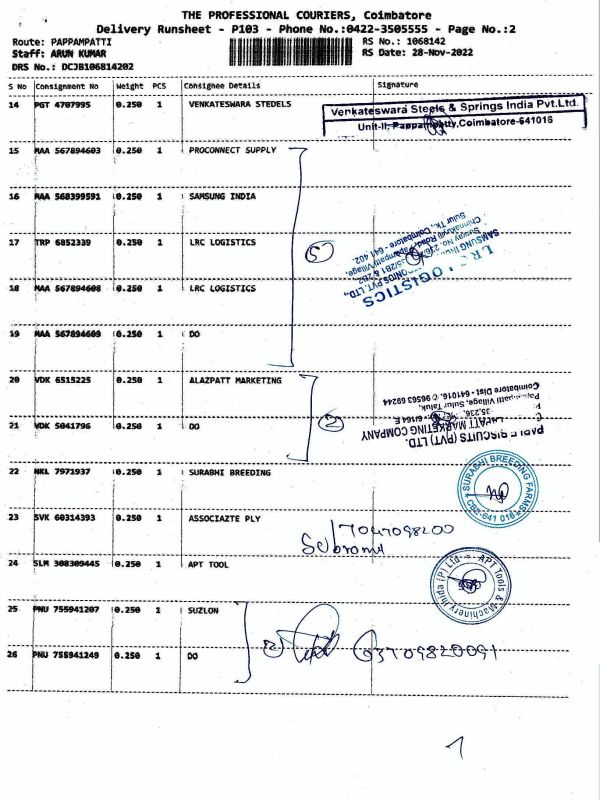 THE PROFESSIONAL COURIERS, Coimbatore
Delivery Runsheet - P103 - Phone No.:0422-3505555 - Page No.:2
Route: PAPPAMPATTI RS No.: 1068142
Staff: ARUN KUMAR RS Date: 28-Nov-2022
DRS No.: DCJB106814202
S No Consignment No Weight PCS Consignee Details Signature
14 PGT 4707995 0.250 1 VENKATESWARA STEDELS
Venkateswara Steels & Springs India Pvt.Ltd.
Unit-II, Pappampatty,Coimbatore-641016
15 MAA 567894603 0.250 1 PROCONNECT SUPPLY
16 MAA 568399591 0.250 1 SAMSUNG INDIA
17 TRP 6852339 0.250 1 LRC LOGISTICS
5
18 MAA 567894608 0.250 1 LRC LOGISTICS
LOGISTICS
19 MAA 567894609 0.250 1 DO
20 VDK 6515225 0.250 1 ALAZPATT MARKETING
Coimbatore Dist - 641016. ✆ 96563 69244
21 VDK 5041796 0.250 1 DO
2
MARKETING COMPANY
BISCUITS (PVT) LTD.
22 NKL 7971937 0.250 1 SURABHI BREEDING
SURABHI BREEDING FARMS
CBE-641 016
23 SVK 60314393 0.250 1 ASSOCIAZTE PLY
24 SLM 308309445 0.250 1 APT TOOL
APT Tools & Machinery India (P) Ltd
25 PNU 755941207 0.250 1 SUZLON
2
26 PNU 755941249 0.250 1 DO
1